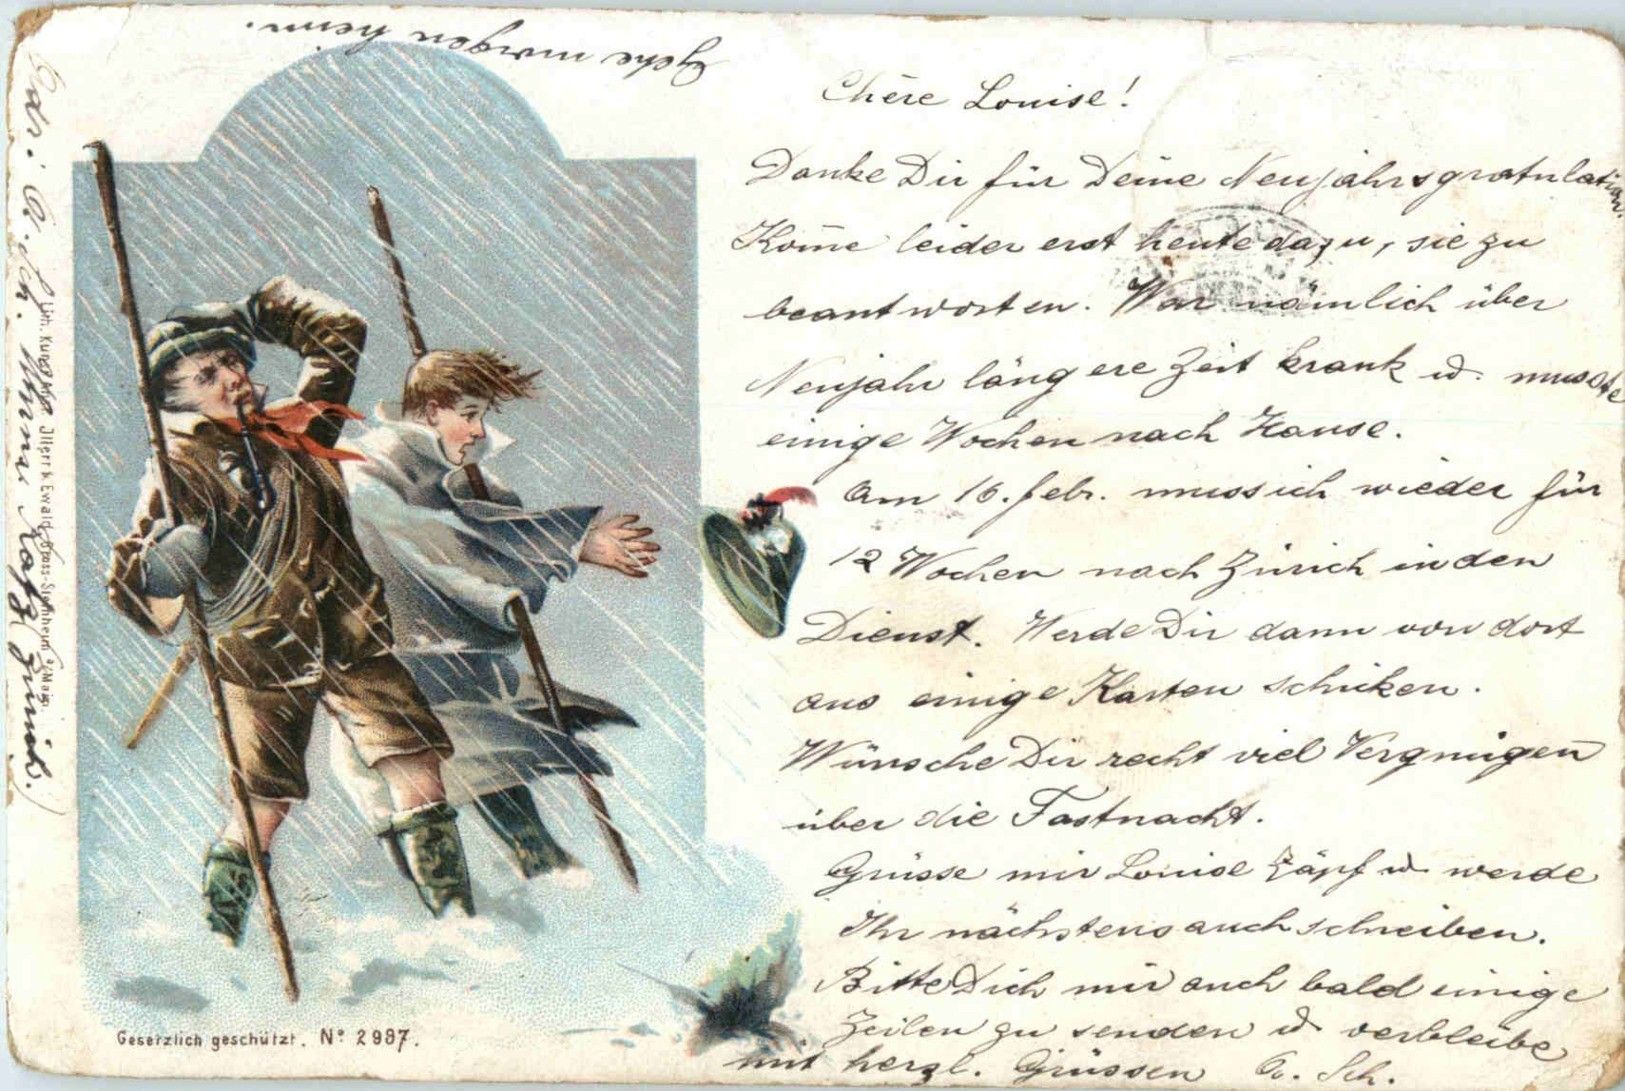 Chère Louise!
Danke Dir für Deine Neujahrsgratulation.
Kom̄e leider erst heute dazu, sie zu
beantworten. War nämlich über
Neujahr längere Zeit krank u. musste
einige Wochen nach Hause.
Am 16. Febr. muss ich wieder für
12 Wochen nach Zürich in den
Dienst. Werde Dir dann von dort
aus einige Karten schicken.
Wünsche Dir recht viel Vergnügen
über die Fastnacht.
Grüsse mir Louise Zäpf u. werde
Ihr nächstens auch schreiben.
Bitte Dich mir auch bald einige
Zeilen zu senden u. verbleibe
mit herzl. Grüssen A. Sch.
Gehe morgen heim.
Adr: A. Sch. Zürich.)
Lith. Kunstanst. Ewald
Gesetzlich geschützt. No 2987.